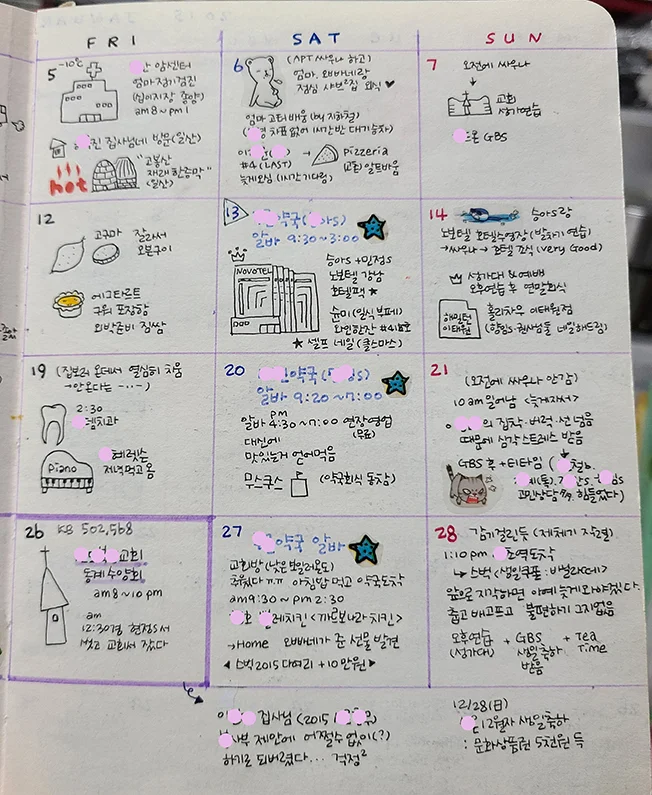 FRI SAT SUN
5
-10℃
암센터
엄마 정기검진
(심이지장 종양)
am 8 ~ pm 1
진 집사님네 방문 (일산)
hot
"고봉산
재래 한증막"
(일산)
6
(APT 싸우나 하고)
엄마, 오빠네랑
점심 샤브²집 외식 ♥
엄마 고터 배웅 (by 지하철)
차표 없어 1시간반 대기승차)
#4 (LAST)
→ Pizzeria
알트바움
늦게와심 (1시간 기다림)
7
오전에 싸우나
↓
교회
성가연습
GBS
12
고구마 잘라서
오븐구이
에그타르트
구워 포장함
외박준비 짐쌈
13
약국
알바 9:30~3:00
승아s + 민정s
노보텔 강남
호텔팩 ★
NOVOTEL
슌미 (일식 부페)
와인한잔
★ 셀프 네일 (클스마스)
14
승아s랑
노보텔 호텔수영장 (발차기 연습)
→ 싸우나 → 호텔 조식 (very Good)
성가대 & 예배
오후연습 후 연말회식
해밀턴
이태원
홀리차우 이태원점
네일해드림)
19 (집보러 온대서 열심히 치움
→ 안온다는 -…-)
2:30
치과
Piano
헤렉슨
저녁먹고 옴
20
약국
알바 9:20~7:00
알바 pm 4:30~7:00 연장영업
대신에 (무료)
맛있는거 얻어먹음
무스쿠스 (약국회식 동참)
21
(오전에 싸우나 안감)
10am 일어남 <늦게자서>
의 집착·버럭·선 넘음
때문에 심각 스트레스 받음
↓
GBS 후 + 티타임
고민상담 쭉 힘들었다)
26 KB 502,568
교회
동계수양회
am 8 ~ 10 pm
am
12:30경 현정s서
씻고 교회서 잤다
27
약국 알바
교회방 (낮은 보일러온도)
추웠다 ㅠㅠ 아침밥 먹고 약국도착
am 9:30 ~ pm 2:30
치킨 <까르보나라 치킨>
→ Home 오빠네가 준 선물 발견
◀ 스벅 2015 다여리 + 10만원 ▶
28 감기걸린듯 (재채기 작렬)
1:10 pm 도착
↳ 스벅 (생일쿠폰:비벌라떼)
앞으로 지각하면 아예 늦게와야겠다.
춥고 배고프고 불편하기 그지없음
오후연습 + GBS + Tea
(성가대) 생일축하 Time
받음
집사님 (2015
부 제안에 어쩔수 없이(?)
하기로 되버렸다… 걱정²
12/28(日)
12월자 생일축하
: 문화상품권 5천원 득